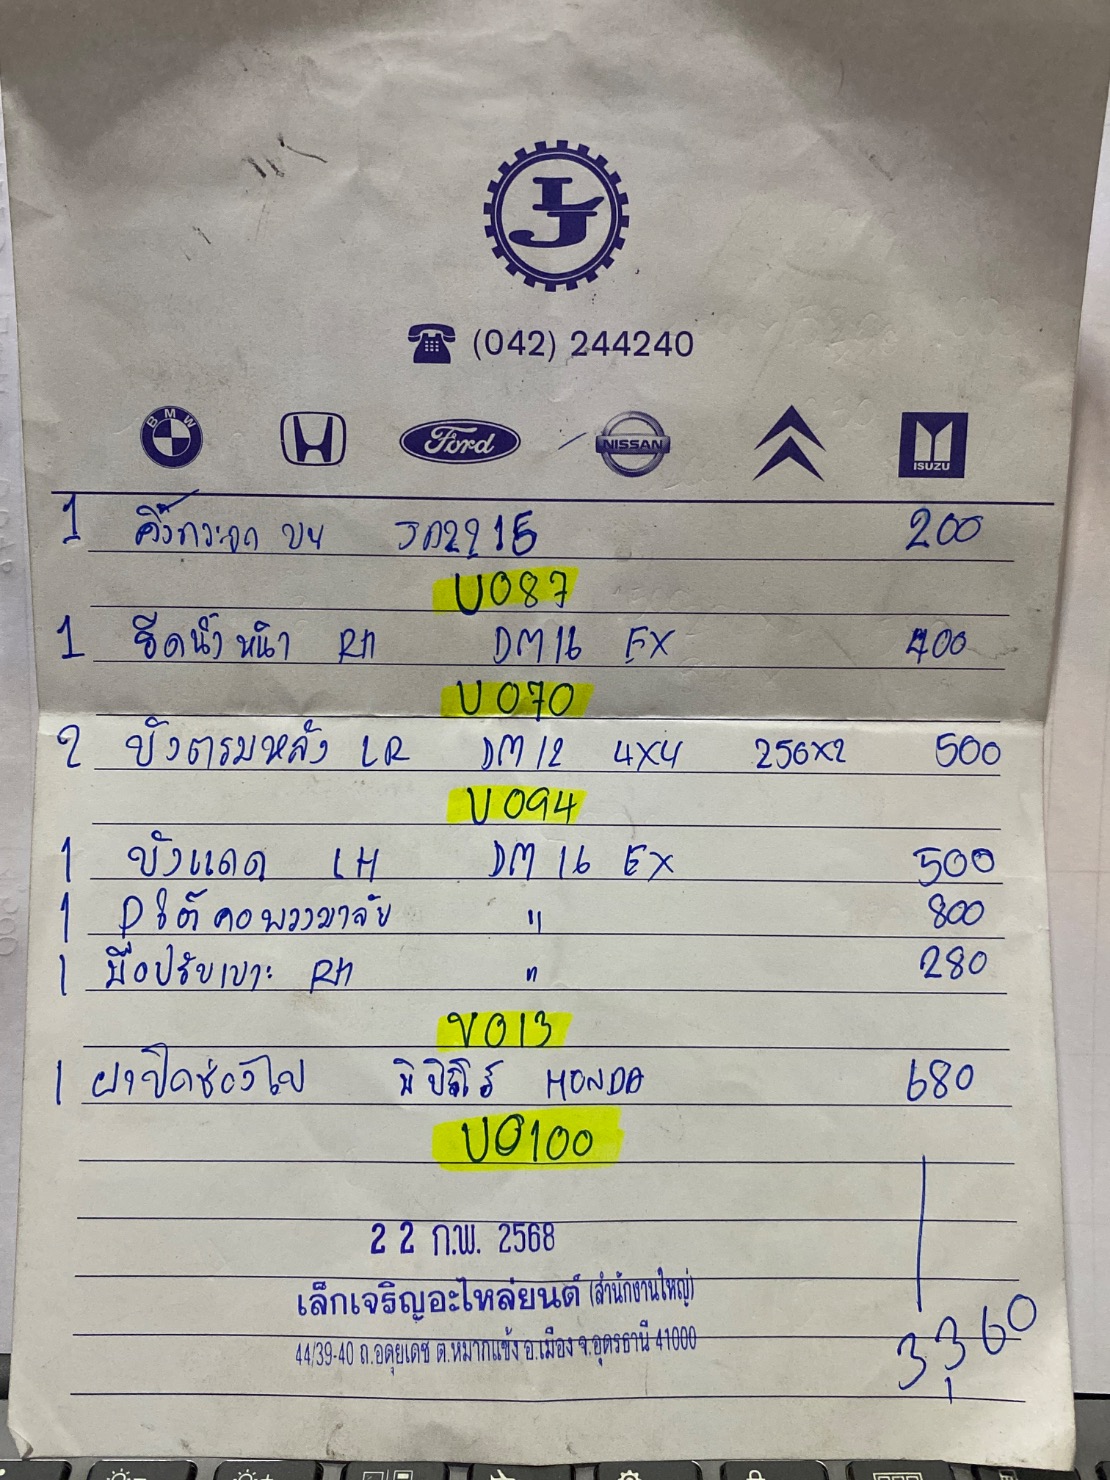 LJ
(042) 244240
BMW Ford NISSAN ISUZU
1 คิ้วกระจก บน JA2215 200
U087
1 รีดน้ำหน้า RH DM16 EX 400
U070
2 บังตรมหลัง LR DM12 4X4 250x2 500
U094
1 บังแดด LH DM16 EX 500
1 ใต้คอพวงมาลัย " 800
1 มือปรับเบาะ RH " 280
U013
1 ฝาปิดช่อง HONDA 680
U0100
22 ก.พ. 2568
เล็กเจริญอะไหล่ยนต์ (สำนักงานใหญ่)
44/39-40 ถ.อดุยเดช ต.หมากแข้ง อ.เมือง จ.อุดรธานี 41000
3,360